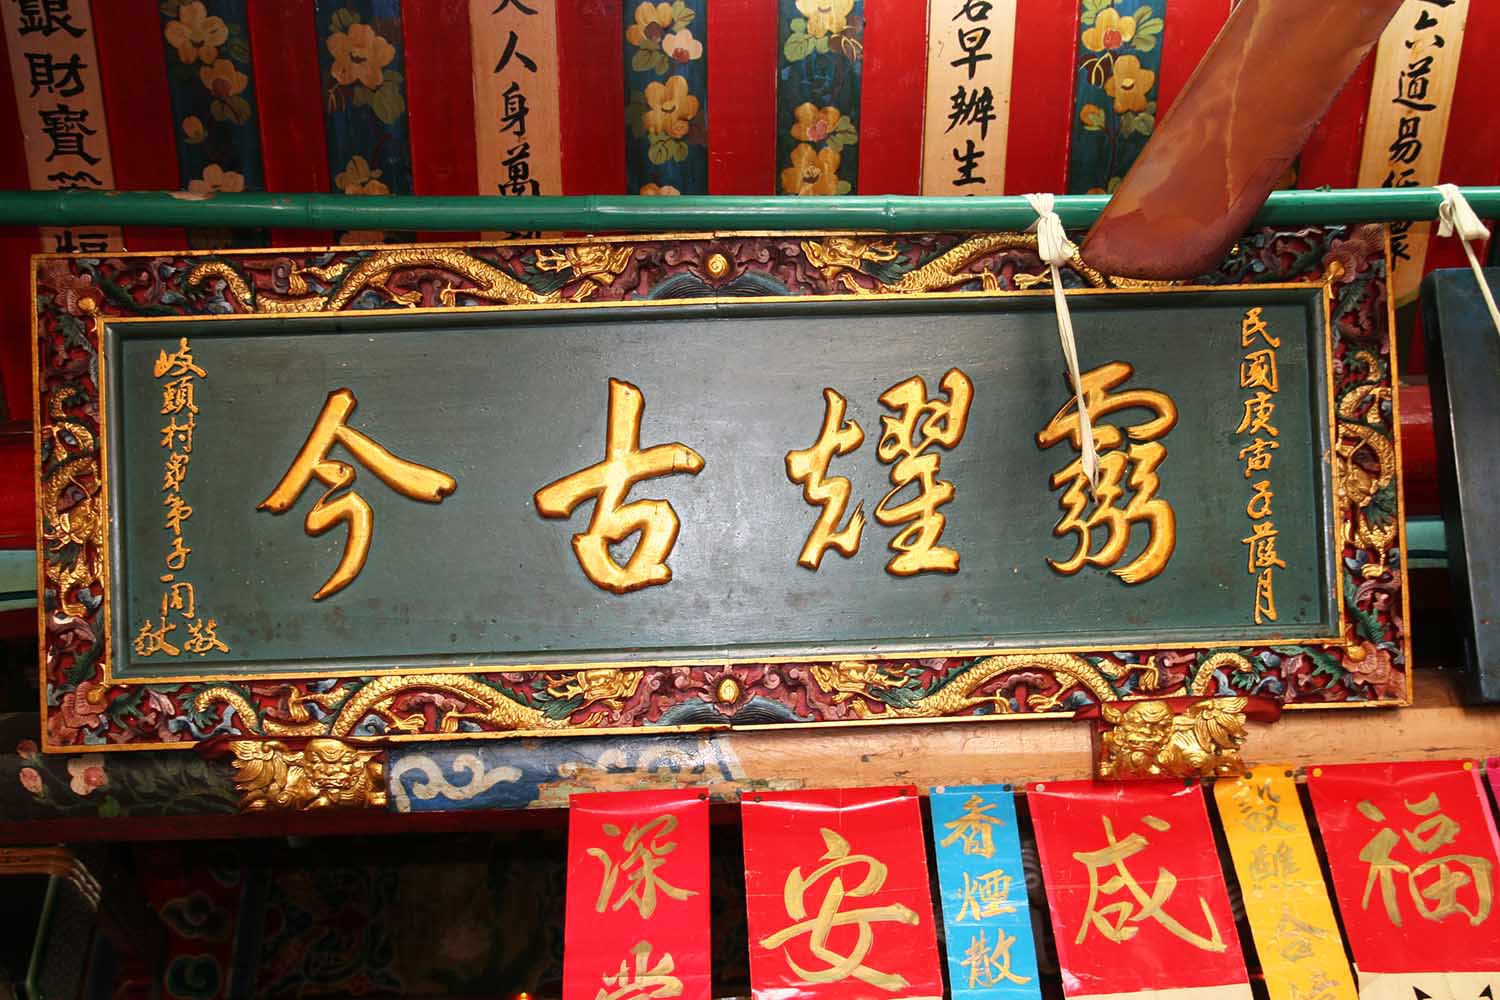 六道易
早辦生
人身萬
銀財寶
民國庚寅子葭月
靈耀古今
岐頭村眾弟子一同敬獻
福
設醮合
咸
香煙散
安
深堂